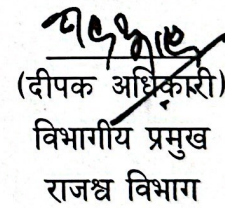 (दीपक अधिकारी)
विभागीय प्रमुख
राजश्व विभाग